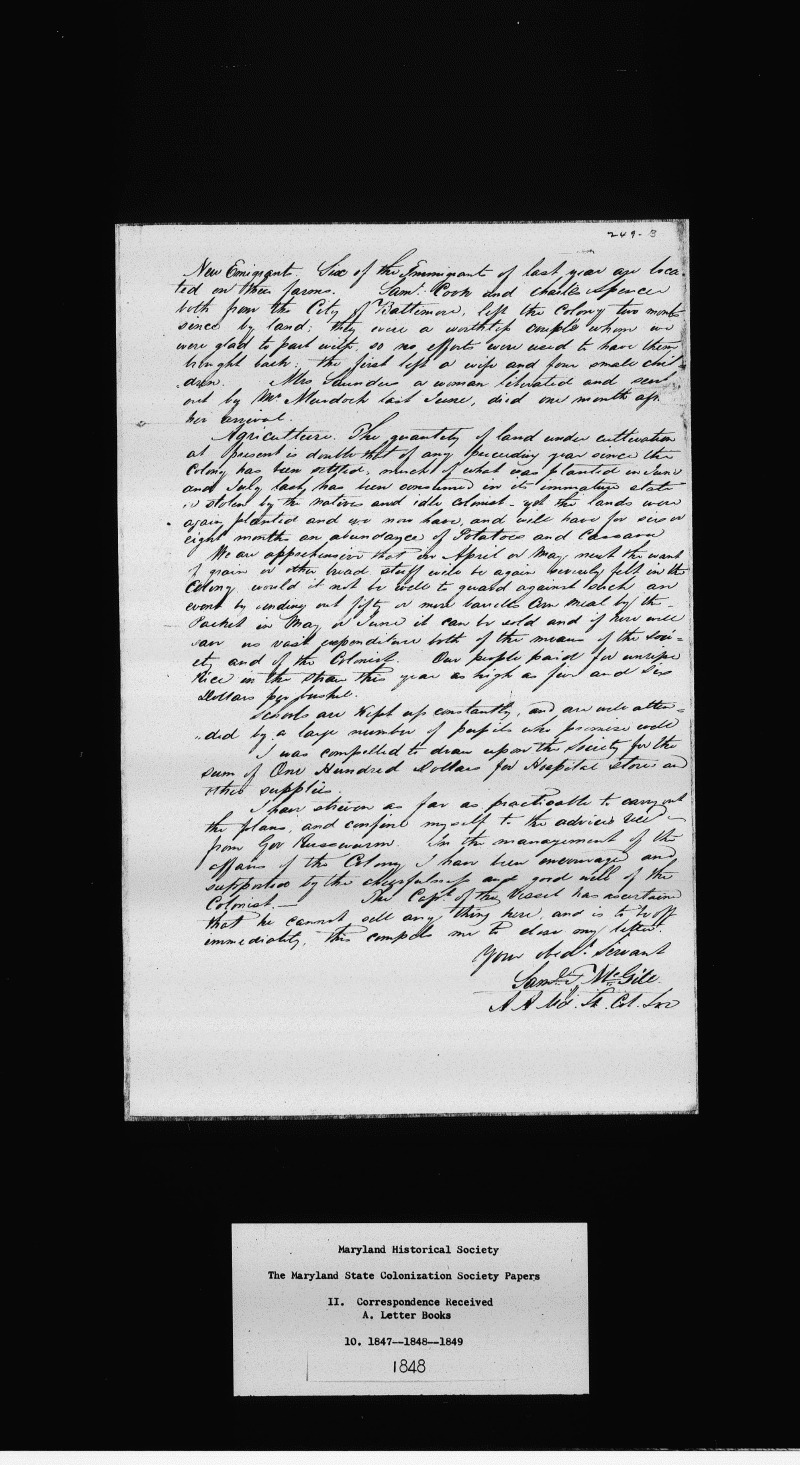 249-B
New Emigrants. Six of the Immigrant of last year are loca-
ted on their farms. Saml. Cook and Charles Spencer
both from the City of Baltimore, left the Colony two months
since by land; they were a worthless couple whom we
were glad to part with, so no efforts were used to have them
brought back; the first left a wife and four small chil
dren. Mrs Saunders a woman liberated and sent
out by Mr. Murdoch last June, died one month aft
her arrival.
Agriculture. The quantity of land under cultivation
at present is double that of any preceeding year since the
Colony has been settled; much of what was planted in June
and July last, has been consumed in its immature state
or stolen by the natives and idle colonist - yet the lands were
again planted and we now have, and will have for six or
eight months an abundance of Potatoes and Cassava
We are apprehensive that in April or May next the want
of grain or other bread stuff will be again severely felt in the
Colony would it not be well to guard against such an
event by sending out fifty or more barrells Corn Meal by the
Packet in May or June it can be sold and if here will
save us vast expenditure both of the means of the Soci-
ety and of the Colonist. Our people paid for unripe
Rice in the straw this year as high as five and six
Dollars per bushel.
Schools are kept up constantly, and are well atten-
ded by a large number of pupils who promise well
I was compelled to draw upon the Society for the
sum of One Hundred Dollars for Hospital stores and
other supplies.
I have striven as far as practicable to carry out
the plans, and confine myself to the advices
from Gov Russwurm. In the management of the
affairs of the Colony I have been encouraged and
supported by the cheerfulness and good will of the
Colonist. — The Capt. of the Vessel has ascertained
that he cannot sell any thing here, and is to be off
immediately, this compels me to close my letter.
Your obedt. Servant
Saml. F. McGill
A A Md. St. Col. Soc
Maryland Historical Society
The Maryland State Colonization Society Papers
II. Correspondence Received
A. Letter Books
10. 1847--1848--1849
1848